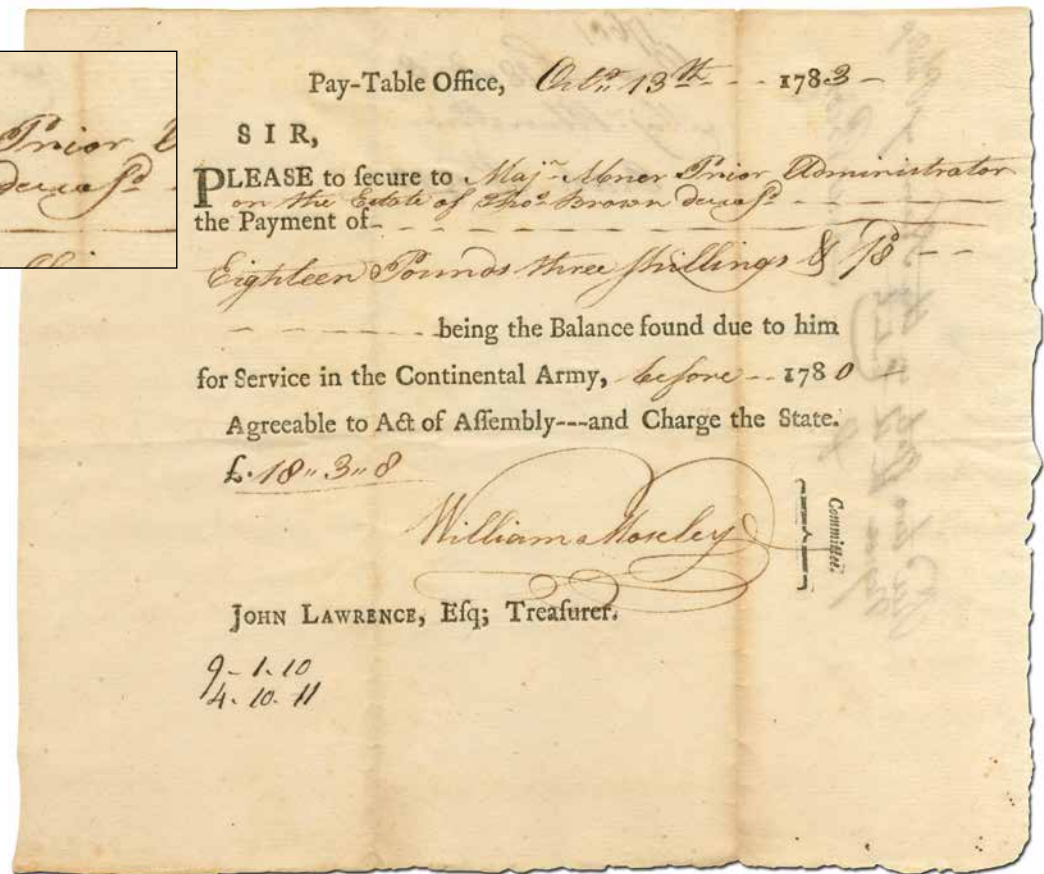 Pay-Table Office, Octr. 13th - - - 1783 -
SIR,
PLEASE to secure to Majr Abner Prior Administrator
on the Estate of Thos Brown deceasd - - - - -
the Payment of - - - - - - - - -
Eighteen Pounds three shillings & /8 - -
- - - - - - being the Balance found due to him
for Service in the Continental Army, before - - 1780
Agreeable to Act of Aſſembly---and Charge the State.
£. 18 „ 3 „ 8
William Moseley
Committee.
JOHN LAWRENCE, Eſq; Treaſurer.
9 - 1. 10
4. 10. 11
Prior
deceasd